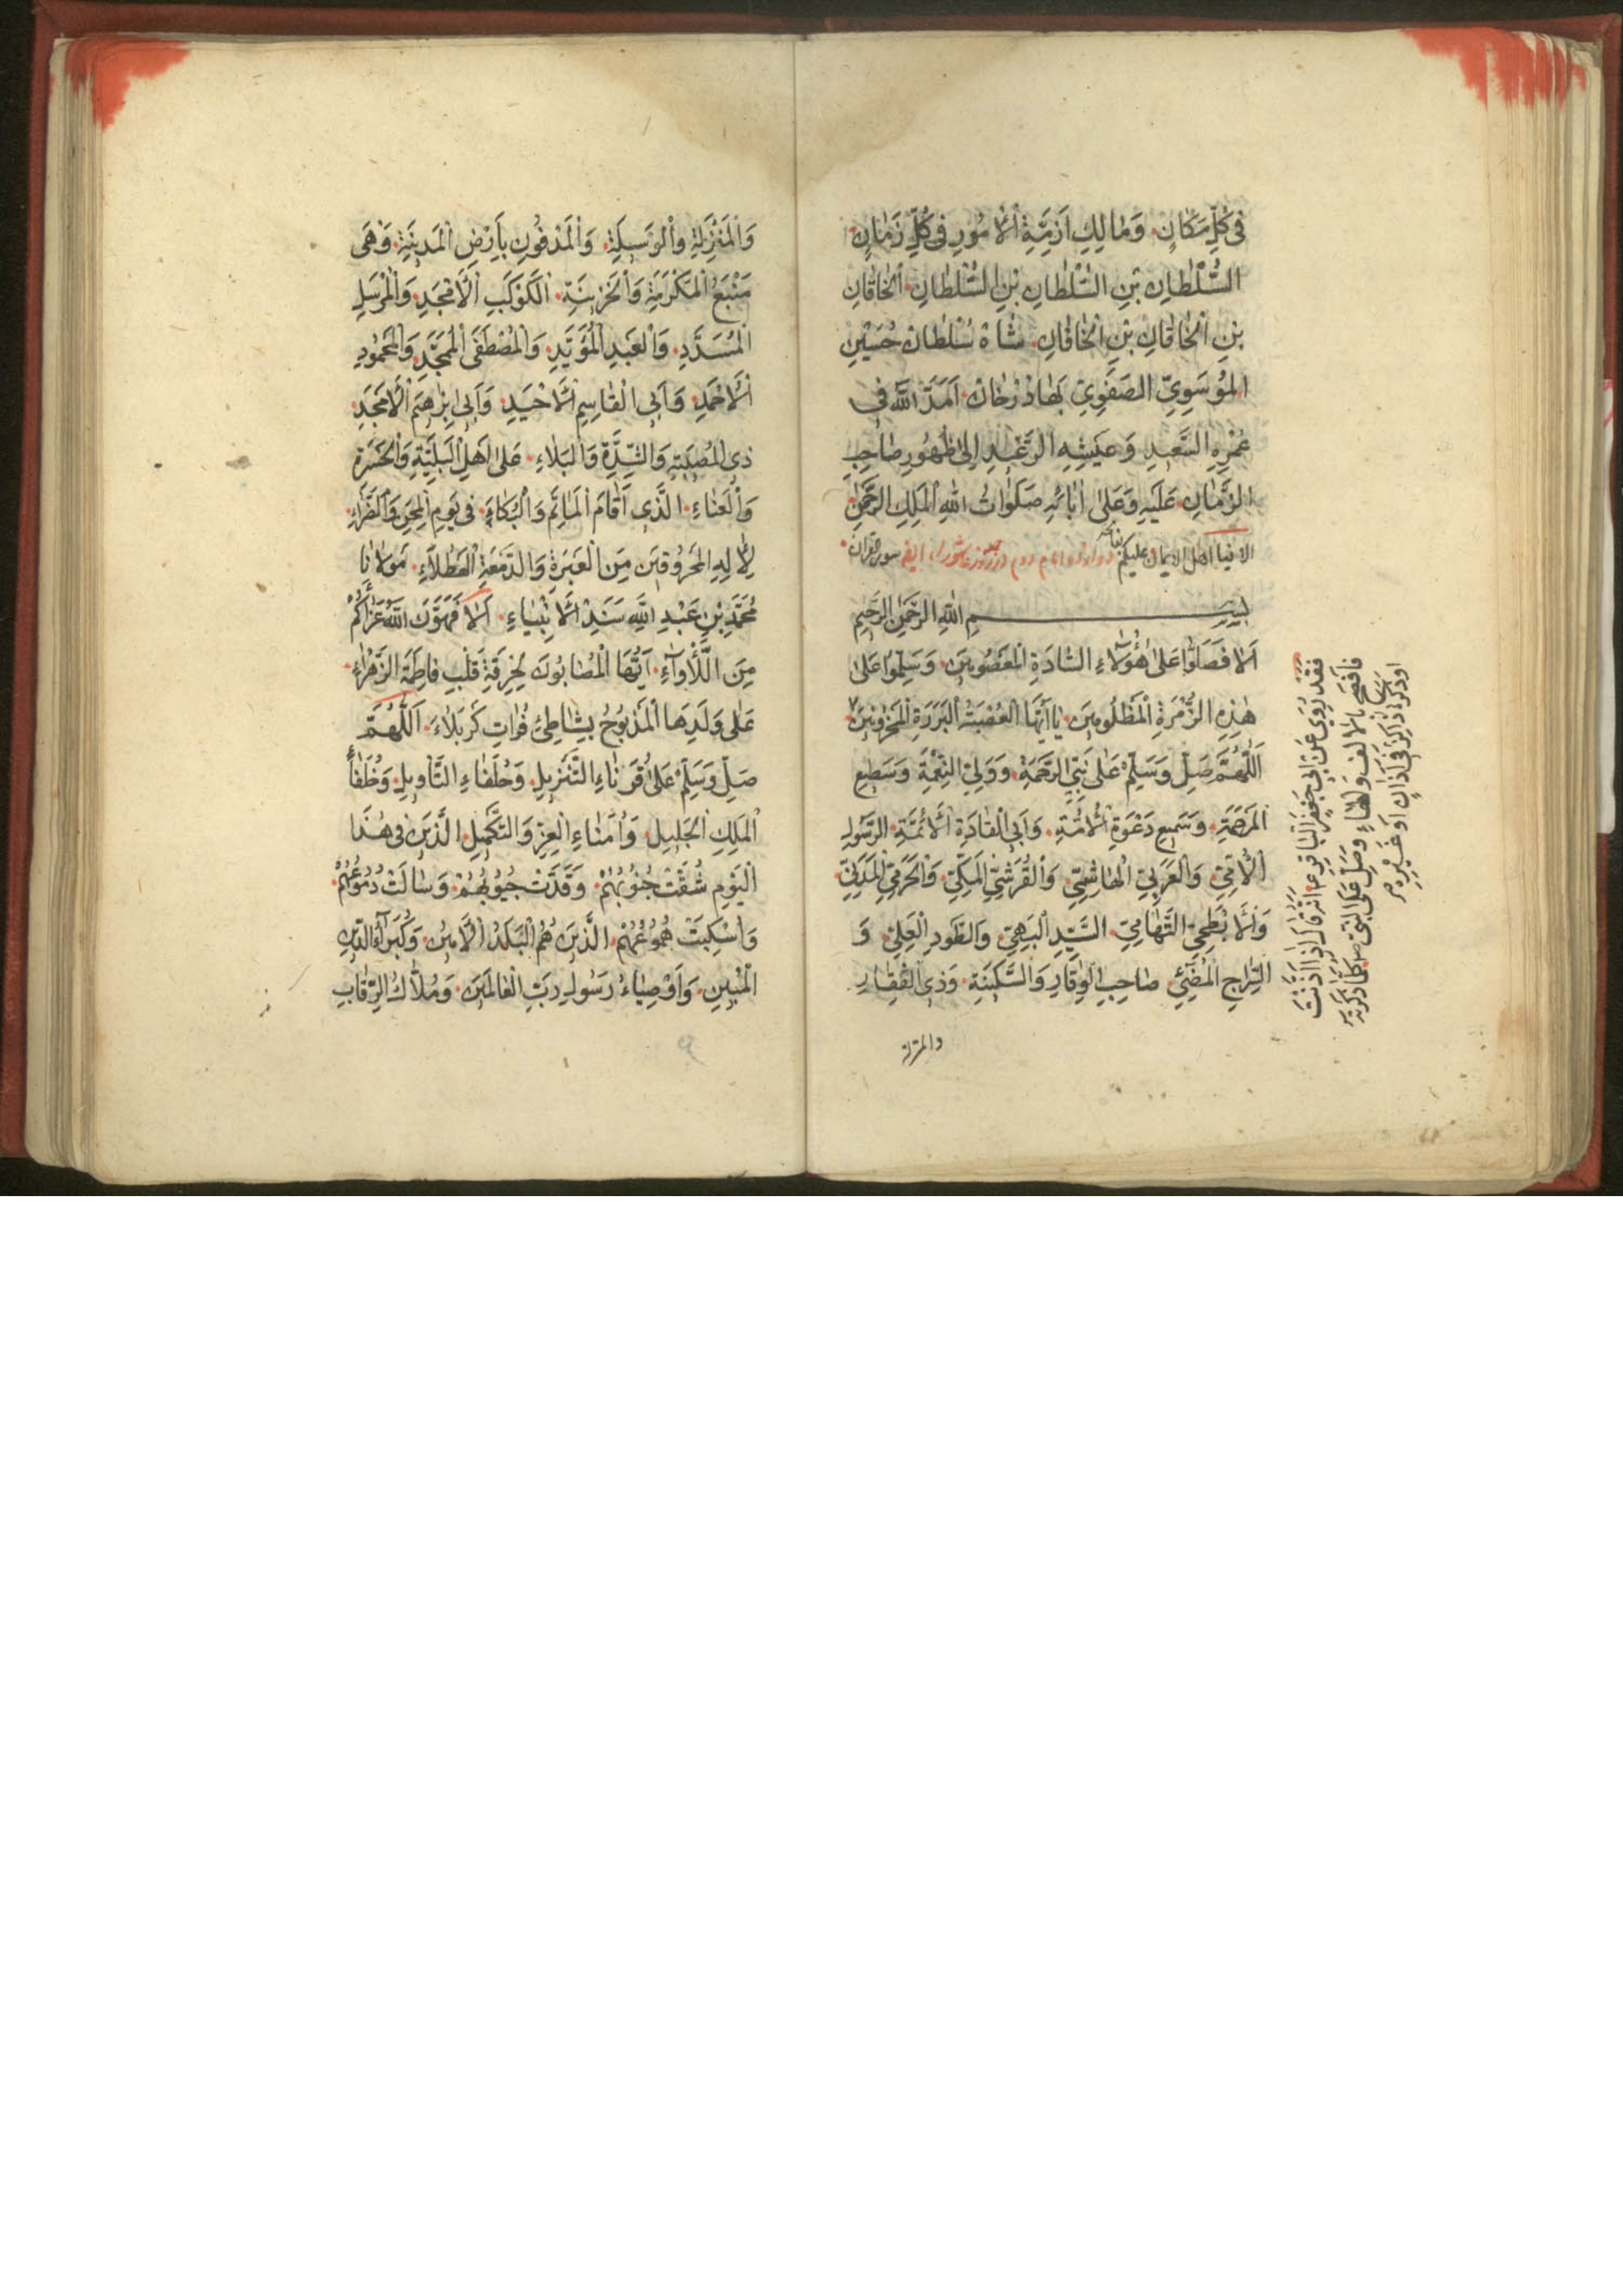 فِى كُلِّ مَكَانٍ وَمَالِكِ اَزِمَّةِ الْاُمُورِ فِى كُلِّ زَمَانٍ
السُّلْطَانِ بْنِ السُّلْطَانِ بْنِ السُّلْطَانِ الْخَاقَانِ
بْنِ الْخَاقَانِ بْنِ الْخَاقَانِ شَاهْ سُلْطَانْ حُسَيْنِ
الْمُوسَوِيِّ الصَّفَوِيِّ بَهَادُرْخَانْ اَمَدَّ اللّٰهُ فِى
عُمْرِهِ السَّعِيدِ وَعَيْشِهِ الرَّغِيدِ اِلٰى ظُهُورِ صَاحِبِ
الزَّمَانِ عَلَيْهِ وَعَلٰى اٰبَائِهِ صَلَوَاتُ اللّٰهِ الْمَلِكِ الرَّحْمٰنِ
الا فيا اهل الايمان عليكم دوازده امام دوم در روز عاشوراء
بِسْمِ اللّٰهِ الرَّحْمٰنِ الرَّحِيمِ
اَلَا فَصَلُّوا عَلٰى هٰؤُلَاءِ السَّادَةِ الْمَعْصُومِينَ وَسَلِّمُوا عَلٰى
هٰذِهِ الزُّمْرَةِ الْمَظْلُومِينَ يَا اَيَّتُهَا الْعُصْبَةُ الْبَرَرَةِ الْمَحْزُونِينَ
اَللّٰهُمَّ صَلِّ وَسَلِّمْ عَلٰى نَبِيِّ الرَّحْمَةِ وَوَلِيِّ النِّعْمَةِ وَسَطِيعِ
الْمَرْحَمَةِ وَسَمِيعِ دَعْوَةِ الْاُمَّةِ وَاَبِى الْقَادَةِ الْاَئِمَّةِ الرَّسُولِ
الْاُمِّيِّ وَالْعَرَبِيِّ الْهَاشِمِيِّ وَالْقُرَشِيِّ الْمَكِّيِّ وَالْحَرَمِيِّ الْمَدَنِيِّ
وَالْاَبْطَحِيِّ التَّهَامِيِّ السَّيِّدِ الْبَهِيِّ وَالطَّوْدِ الْعَلِيِّ وَ
السِّرَاجِ الْمُضِيْئِ صَاحِبِ الْوَقَارِ وَالسَّكِينَةِ وَذِى الْفَقَارِ
والمنزلة
فقد روى عن ابى جعفر الباقر ع انه قال اذا اذنت
فافصح بالالف والهاء وصل على النبى ص كلما ذكرته
او ذكره ذاكر فى اذان او غيره
وَالْمَنْزِلَةِ وَالْوَسِيلَةِ وَالْمَدْفُونِ بِاَرْضِ الْمَدِينَةِ وَهِىَ
مَنْبَعُ الْمَكْرَمَةِ وَالْخَزِينَةِ الْكَوْكَبِ الْاَمْجَدِ وَالْمُرْسَلِ
الْمُسَدَّدِ وَالْعَبْدِ الْمُؤَيَّدِ وَالْمُصْطَفَى الْمُمَجَّدِ وَالْمَحْمُودِ
الْاَحْمَدِ وَاَبِى الْقَاسِمِ الْاَحِيدِ وَاَبِى اِبْرٰهِيمَ الْاَمْجَدِ
ذِى الْمُصِيبَةِ وَالشِّدَّةِ وَالْبَلَاءِ عَلٰى اَهْلِ الْبَلِيَّةِ وَالْحَسْرَةِ
وَالْعَنَاءِ الَّذِى اَقَامَ الْمَاتَمَ وَالْبُكَاءَ فِى يَوْمِ الْمِحَنِ وَالضَّرَّاءِ
لِاٰلِهِ الْمَحْرُوقِينَ مِنَ الْعَبْرَةِ وَالدَّمْعَةِ الْعَطْلَاءِ مَوْلَانَا
مُحَمَّدِ بْنِ عَبْدِ اللّٰهِ سَنَدِ الْاَنْبِيَاءِ اَلَا فَهَوَّنَ اللّٰهُ عَزَاكُمْ
مِنَ اللَّأْوَاءِ اَيُّهَا الْمُصَابُونَ لِحُرْقَةِ قَلْبِ فَاطِمَةَ الزَّهْرَاءِ
عَلٰى وَلَدِهَا الْمَذْبُوحِ بِشَاطِئِ فُرَاتِ كَرْبَلَاءَ اَللّٰهُمَّ
صَلِّ وَسَلِّمْ عَلٰى قُرَنَاءِ التَّنْزِيلِ وَحُلَفَاءِ التَّأْوِيلِ وَخُلَفَاءِ
الْمَلِكِ الْجَلِيلِ وَاُمَنَاءِ الْعِزِّ وَالتَّكْمِيلِ الَّذِينَ فِى هٰذَا
الْيَوْمِ شُقَّتْ جُنُوبُهُمْ وَقَدَّتْ جُيُوبُهُمْ وَسَالَتْ دُمُوعُهُمْ
وَاُسْكِبَتْ هُمُوعُهُمْ الَّذِينَ هُمُ الْبَلَدُ الْاَمِينُ وَكُبَرَاءُ الدِّينِ
الْمُبِينِ وَاَوْصِيَاءُ رَسُولِ رَبِّ الْعَالَمِينَ وَمُلَّاكُ الرِّقَابِ